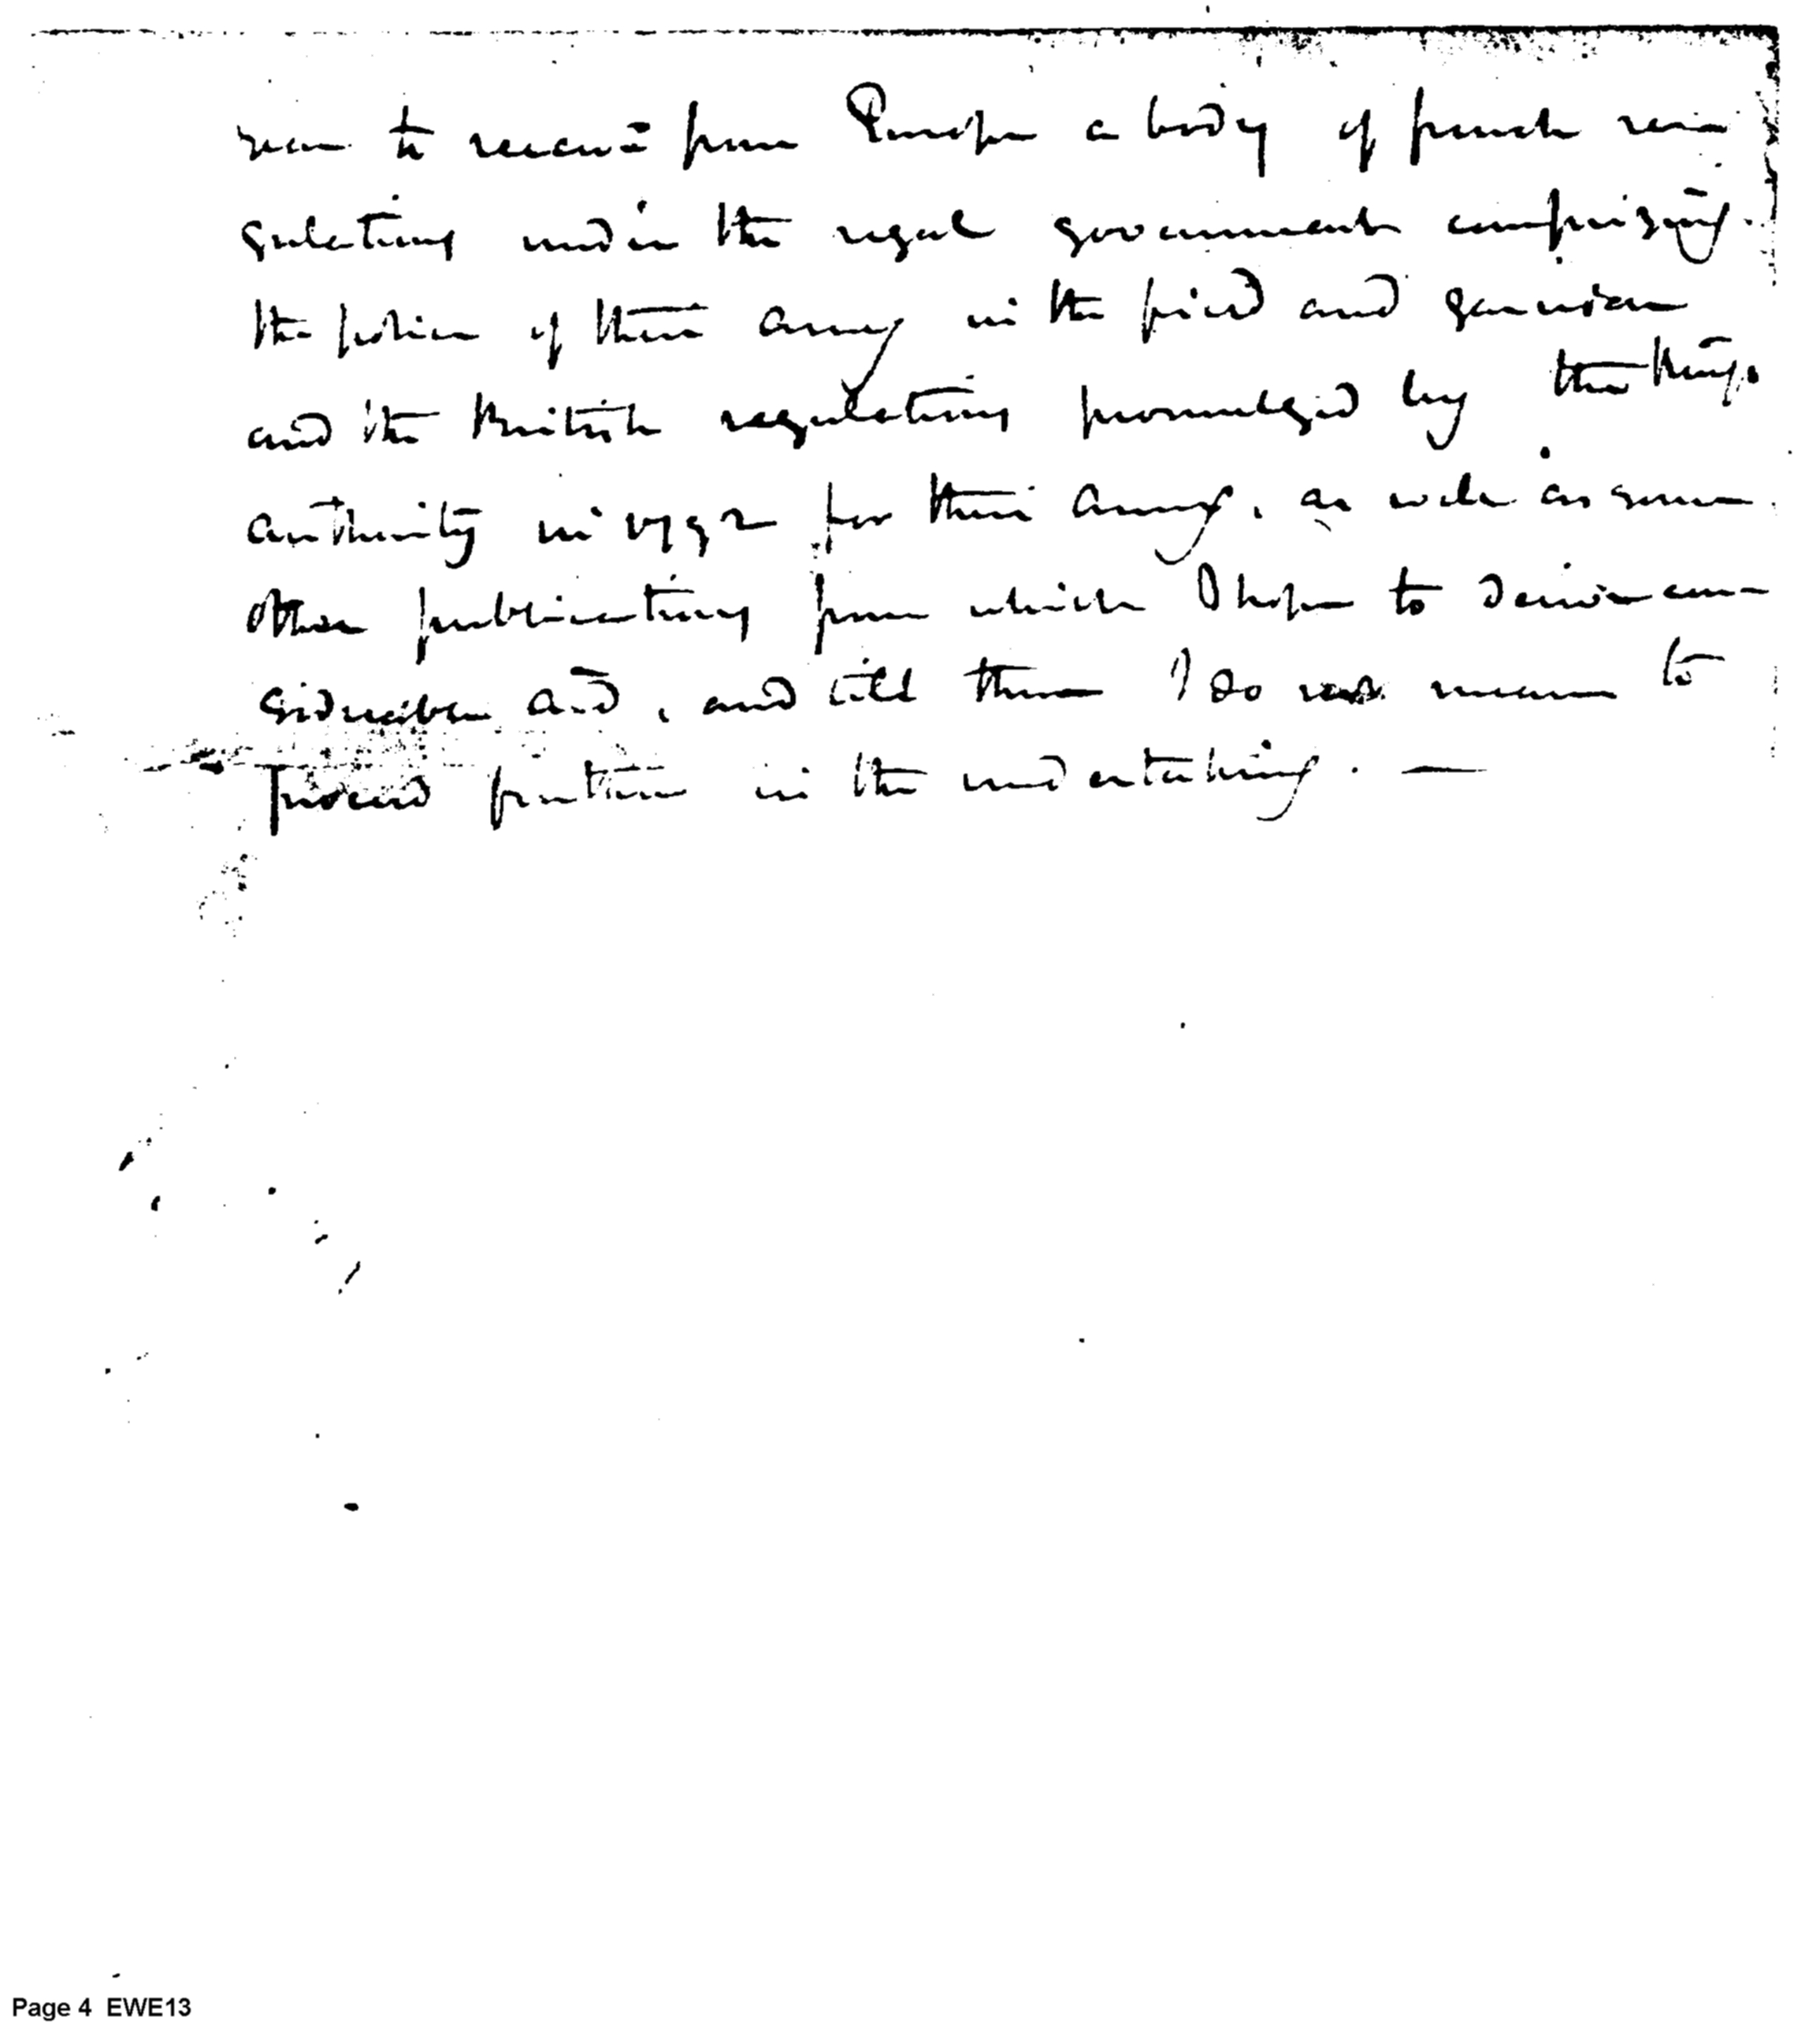 soon to receive from Europe a body of french re-
gulations under the regal government comprising
the police of their army in the field and garrison
and the British regulations promulged by the Kings
authority in 1792 for their army, as well as some
other publications from which I hope to derive con-
siderable aid, and till then I do not mean to
proceed further in the undertaking. —
Page 4 EWE13